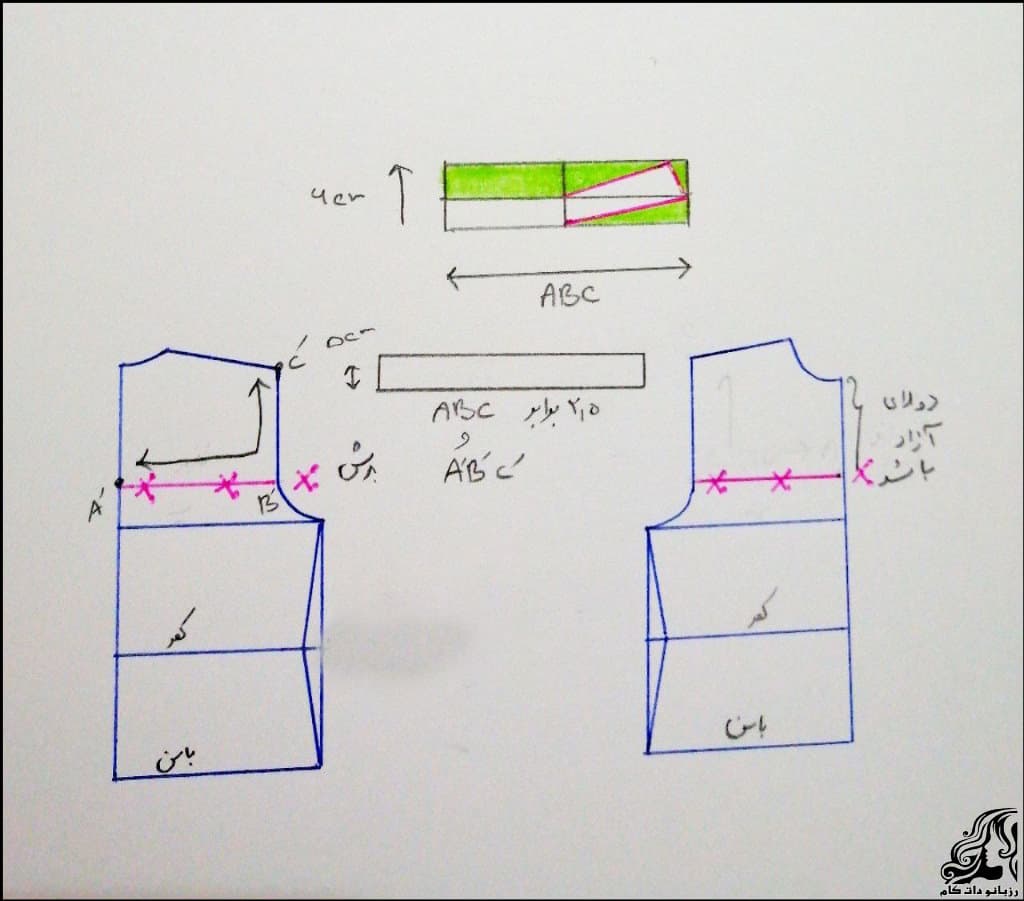 4cm
ABC
C´
5cm
ABC ۲٫۵ برابر
و
A´B´C´
دولای
آزاد
باشد
برش
A´
B´
کمر
کمر
باسن
باسن
رزبانو دات کام